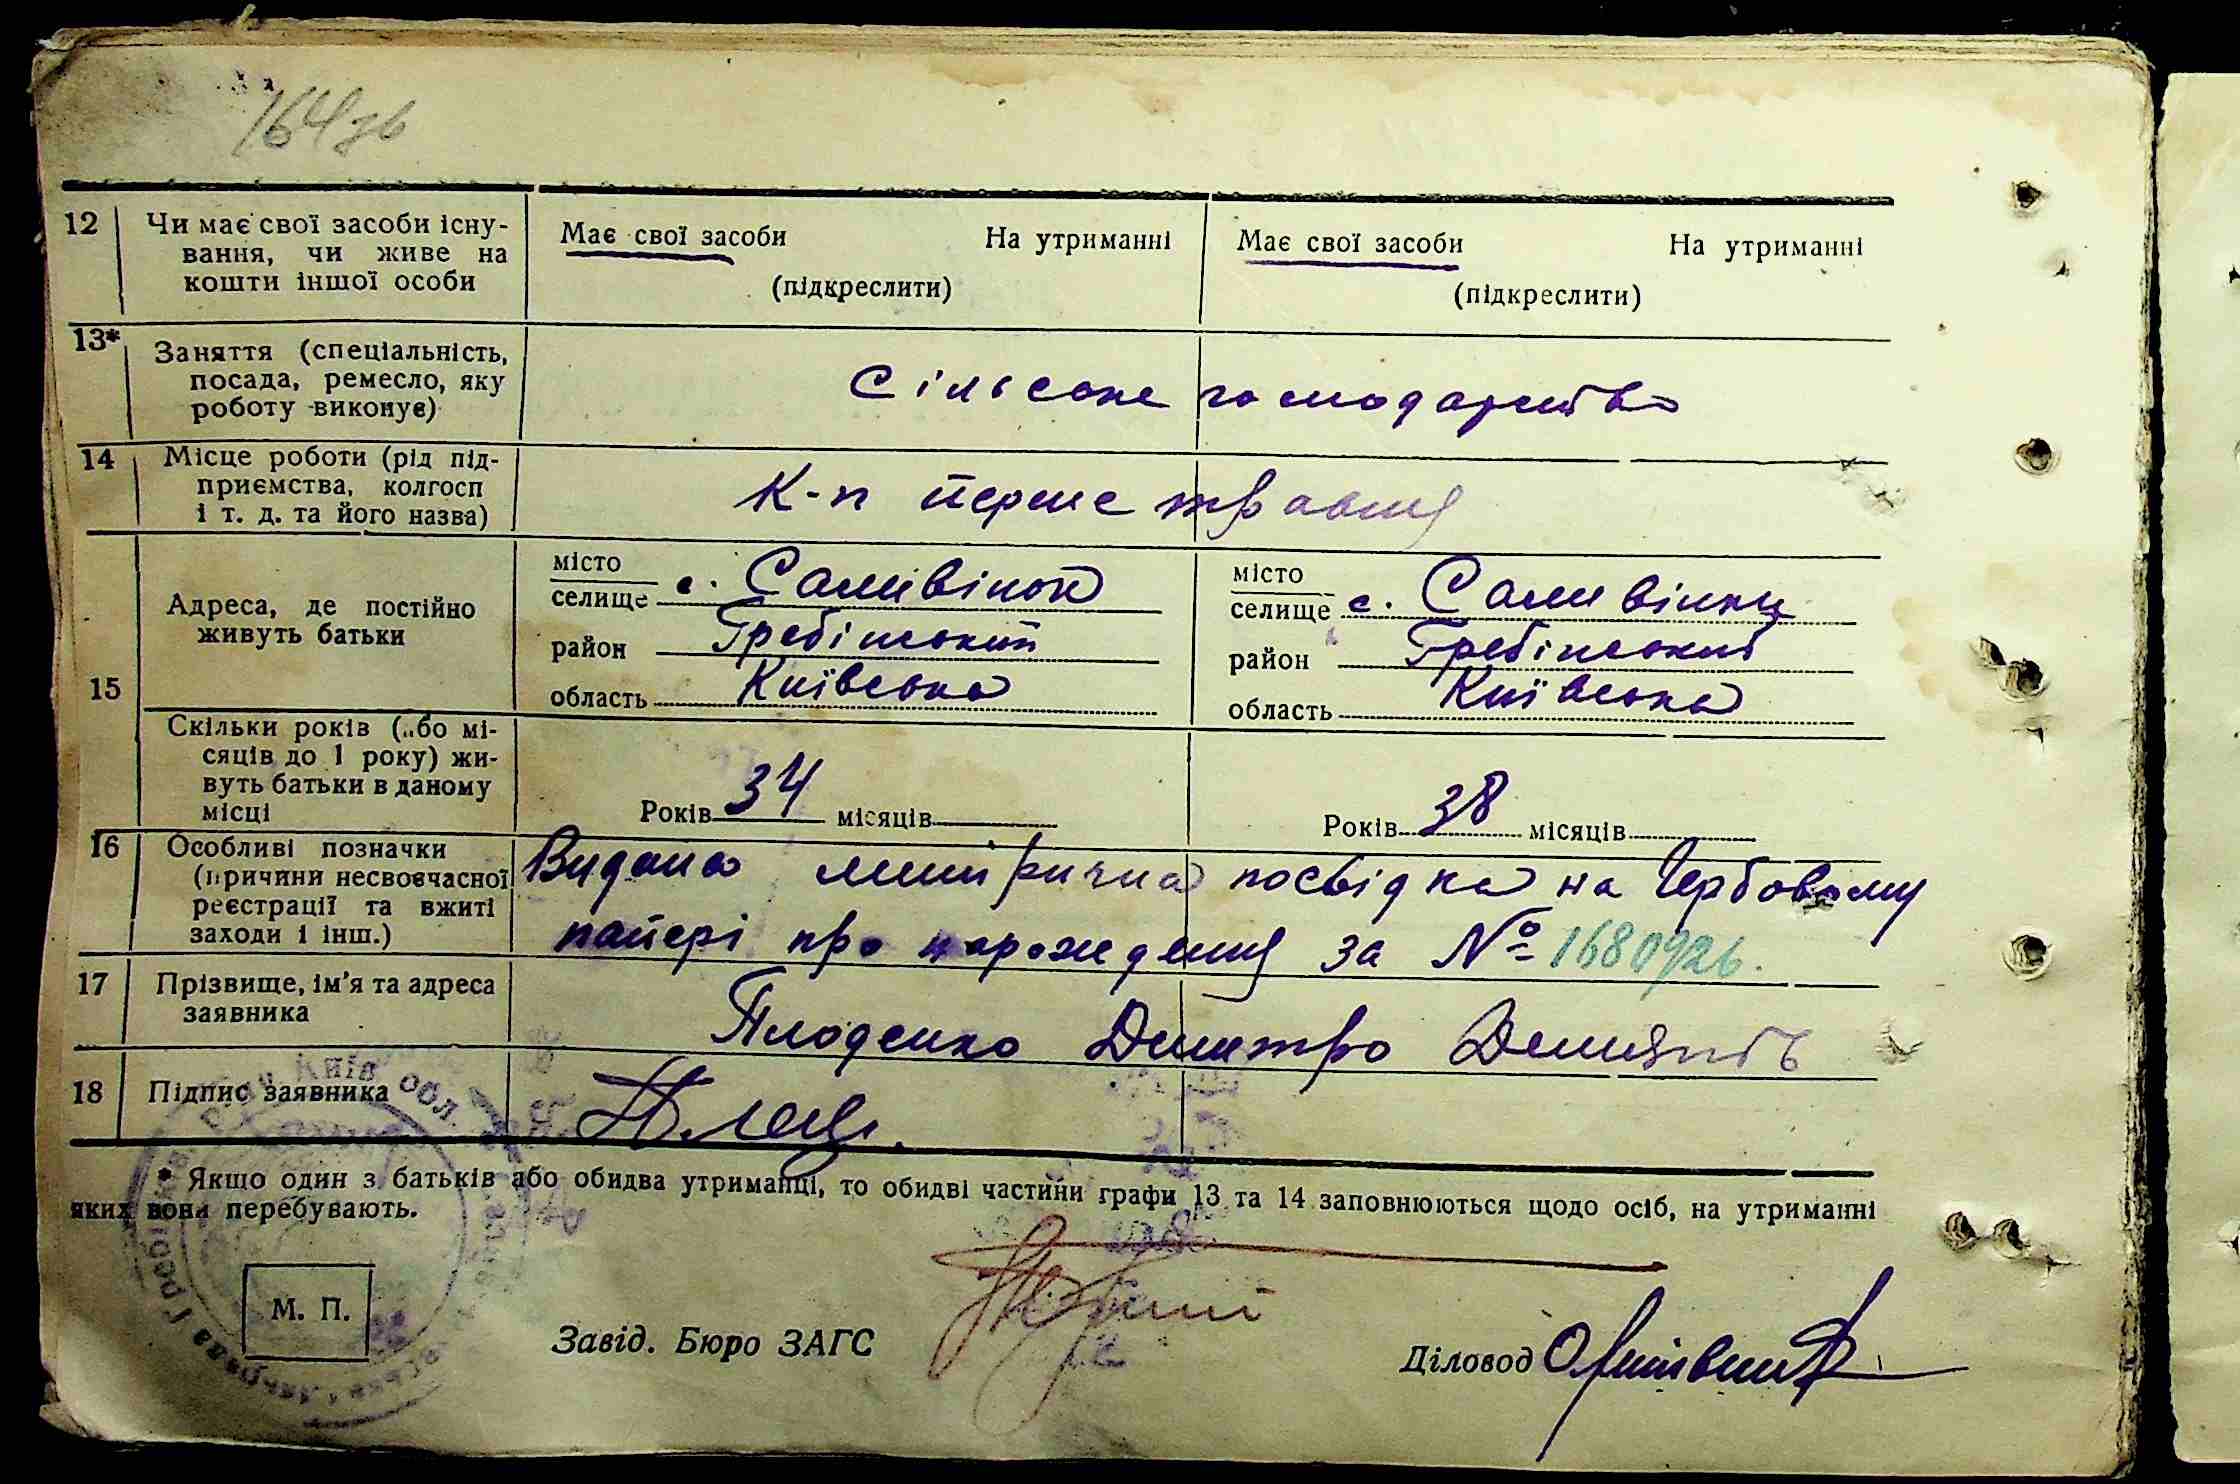 164зв
12 Чи має свої засоби існу-
вання, чи живе на
кошти іншої особи
Має свої засоби На утриманні
(підкреслити)
Має свої засоби На утриманні
(підкреслити)
13* Заняття (спеціальність,
посада, ремесло, яку
роботу виконує)
Сільське господарство
14 Місце роботи (рід під-
приємства, колгосп
і т. д. та його назва)
К-п Перше травня
15 Адреса, де постійно
живуть батьки
місто
селище с. Саливінок
район Гребінський
область Київська
місто
селище с. Саливінки
район Гребінський
область Київська
Скільки років (або мі-
сяців до 1 року) жи-
вуть батьки в даному
місці
Років 34 місяців
Років 38 місяців
16 Особливі позначки
(причини несвоєчасної
реєстрації та вжиті
заходи і інш.)
Видана метрична посвідка на гербовому
папері про нарождення за № 1680926.
17 Прізвище, ім'я та адреса
заявника
Плоденко Дмитро
18 Підпис заявника
* Якщо один з батьків або обидва утриманці, то обидві частини графи 13 та 14 заповнюються щодо осіб, на утриманні
яких вони перебувають.
Київ обл.
М. П.
Завід. Бюро ЗАГС
Діловод